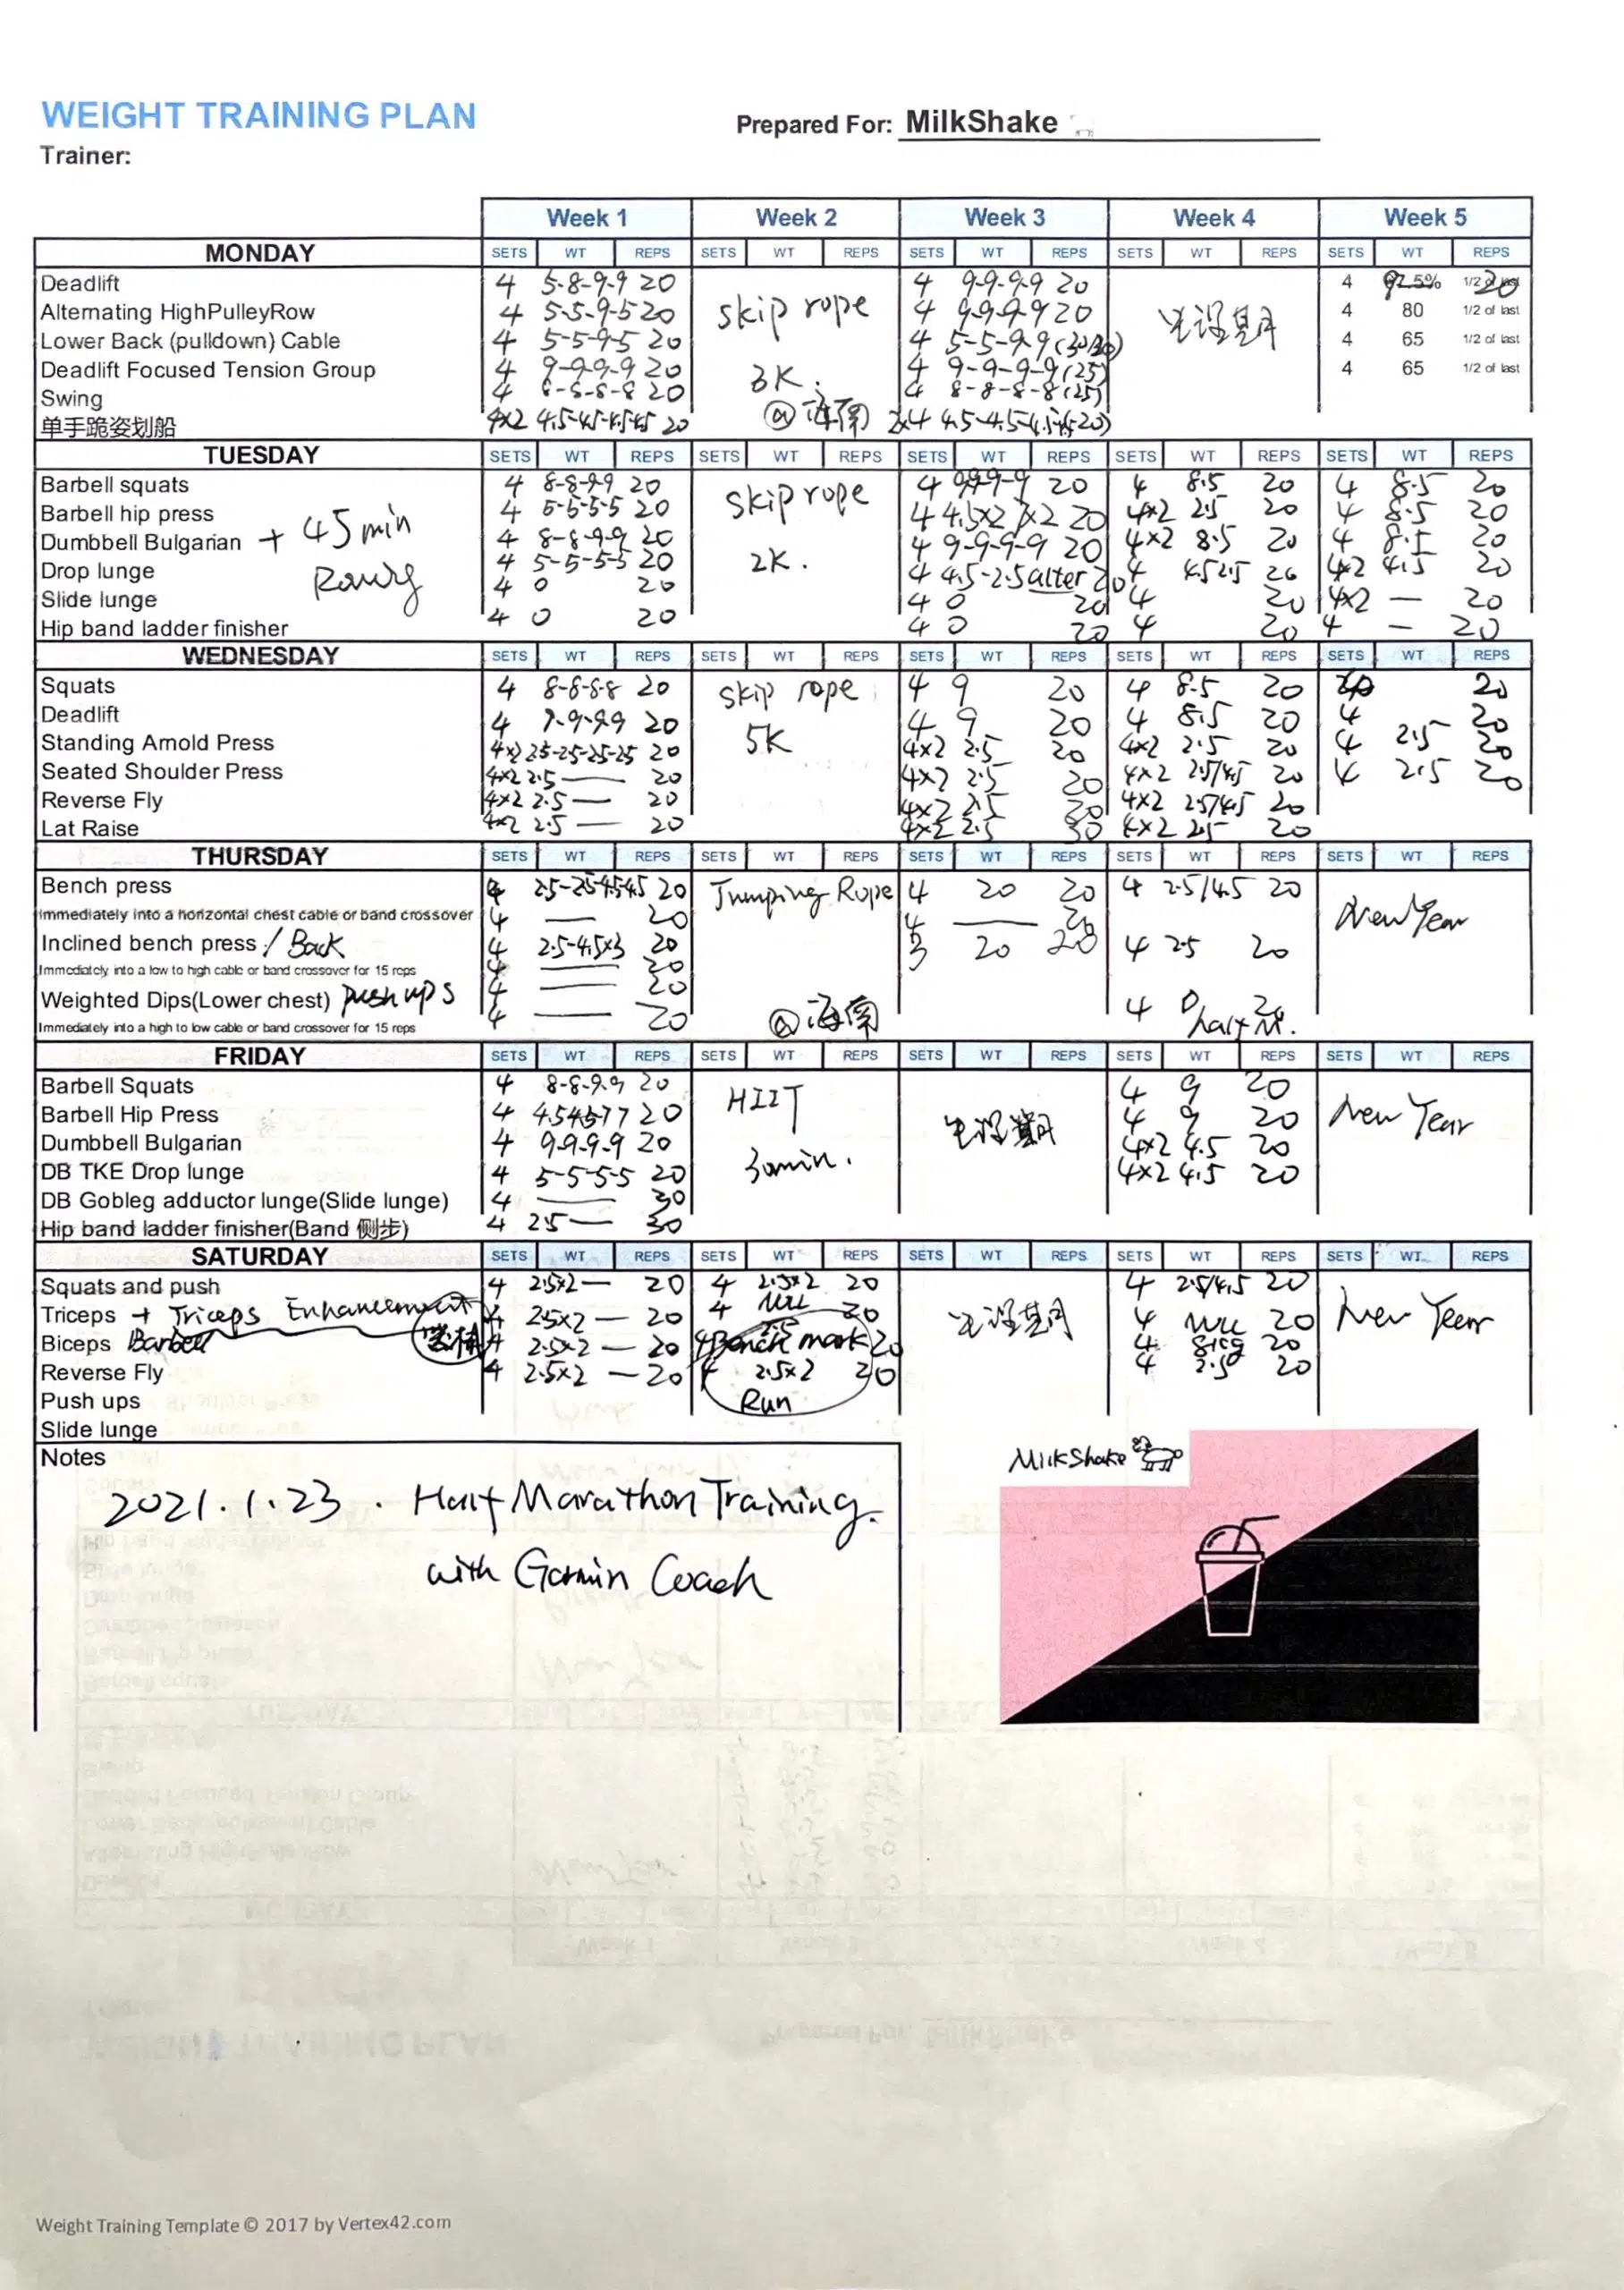 WEIGHT TRAINING PLAN
Prepared For: MilkShake
Trainer:
Week 1 Week 2 Week 3 Week 4 Week 5
MONDAY SETS WT REPS SETS WT REPS SETS WT REPS SETS WT REPS SETS WT REPS
Deadlift 4 5-8-9-9 20 4 9-9-9-9 20 4 97.5% 20
Alternating HighPulleyRow 4 5-5-9-5 20 skip rope 4 9-9-9-9 20 4 80 1/2 of last
Lower Back (pulldown) Cable 4 5-5-9-5 20 4 5-5-9-9 4 65 1/2 of last
Deadlift Focused Tension Group 4 9-9-9-9 20 3K. 4 9-9-9-9(25) 4 65 1/2 of last
Swing 4 8-8-8-8 20 4 8-8-8-8(25)
单手跪姿划船 4x2 4.5-4.5-4.5-4.5 20 @海南 2x4 4.5-4.5-4.5-4.5(20)
TUESDAY SETS WT REPS SETS WT REPS SETS WT REPS SETS WT REPS SETS WT REPS
Barbell squats 4 8-8-9-9 20 skip rope 4 9-9-9-9 20 4 8.5 20 4 8.5 20
Barbell hip press + 45min 4 5-5-5-5 20 4 4.5x2 7x2 20 4x2 2.5 20 4 8.5 20
Dumbbell Bulgarian 4 8-8-9-9 20 4 9-9-9-9 20 4x2 8.5 20 4 8.5 20
Drop lunge 4 5-5-5-5 20 2K. 4 4.5-2.5 alter 20 4 4.5 2.5 20 4x2 4.5 20
Slide lunge 4 0 20 4 0 20 4 20 4x2 — 20
Hip band ladder finisher 4 0 20 4 0 20 4 20 4 — 20
WEDNESDAY SETS WT REPS SETS WT REPS SETS WT REPS SETS WT REPS SETS WT REPS
Squats 4 8-8-8-8 20 skip rope 4 9 20 4 8.5 20 20
Deadlift 4 9-9-9-9 20 4 9 20 4 8.5 20 4 20
Standing Arnold Press 4x2 2.5-2.5-2.5-2.5 20 5K 4x2 2.5 20 4x2 2.5 20 4 2.5 20
Seated Shoulder Press 4x2 2.5 — 20 4x2 2.5 20 4x2 2.5/4.5 20 4 2.5 20
Reverse Fly 4x2 2.5 — 20 4x2 2.5 4x2 2.5/4.5 20
Lat Raise 4x2 2.5 — 20 4x2 2.5 30 4x2 2.5 20
THURSDAY SETS WT REPS SETS WT REPS SETS WT REPS SETS WT REPS SETS WT REPS
Bench press 4 2.5-2.5-4.5-4.5 20 Jumping Rope 4 20 20 4 2.5/4.5 20 New Year
Immediately into a horizontal chest cable or band crossover 4 — 20 4 — 20
Inclined bench press / Back 4 2.5-4.5x3 20 3 20 20 4 2.5 20
Immediately into a low to high cable or band crossover for 15 reps 4 — 20
Weighted Dips(Lower chest) push ups 4 — 20 @海南 4 0 20
Immediately into a high to low cable or band crossover for 15 reps 4 — 20 half M.
FRIDAY SETS WT REPS SETS WT REPS SETS WT REPS SETS WT REPS SETS WT REPS
Barbell Squats 4 8-8-9-9 20 HIIT 4 9 20 New Year
Barbell Hip Press 4 4.5 4.5 7 7 20 4 9 20
Dumbbell Bulgarian 4 9-9-9-9 20 4x2 4.5 20
DB TKE Drop lunge 4 5-5-5-5 20 30min. 4x2 4.5 20
DB Gobleg adductor lunge(Slide lunge) 4 — 30
Hip band ladder finisher(Band 侧步) 4 2.5 — 30
SATURDAY SETS WT REPS SETS WT REPS SETS WT REPS SETS WT REPS SETS WT REPS
Squats and push 4 2.5x2 — 20 4 2.5x2 20 4 2.5/4.5 20 New Year
Triceps + Triceps Enhancement 4 2.5x2 — 20 4 NULL 20 4 NULL 20
Biceps Barbell 4 2.5x2 — 20 4 Bench mark 20 4 8kg 20
Reverse Fly 4 2.5x2 — 20 4 2.5x2 20 4 2.5 20
Push ups Run
Slide lunge
Notes
2021.1.23. Half Marathon Training.
with Garmin Coach
MilkShake
Weight Training Template © 2017 by Vertex42.com